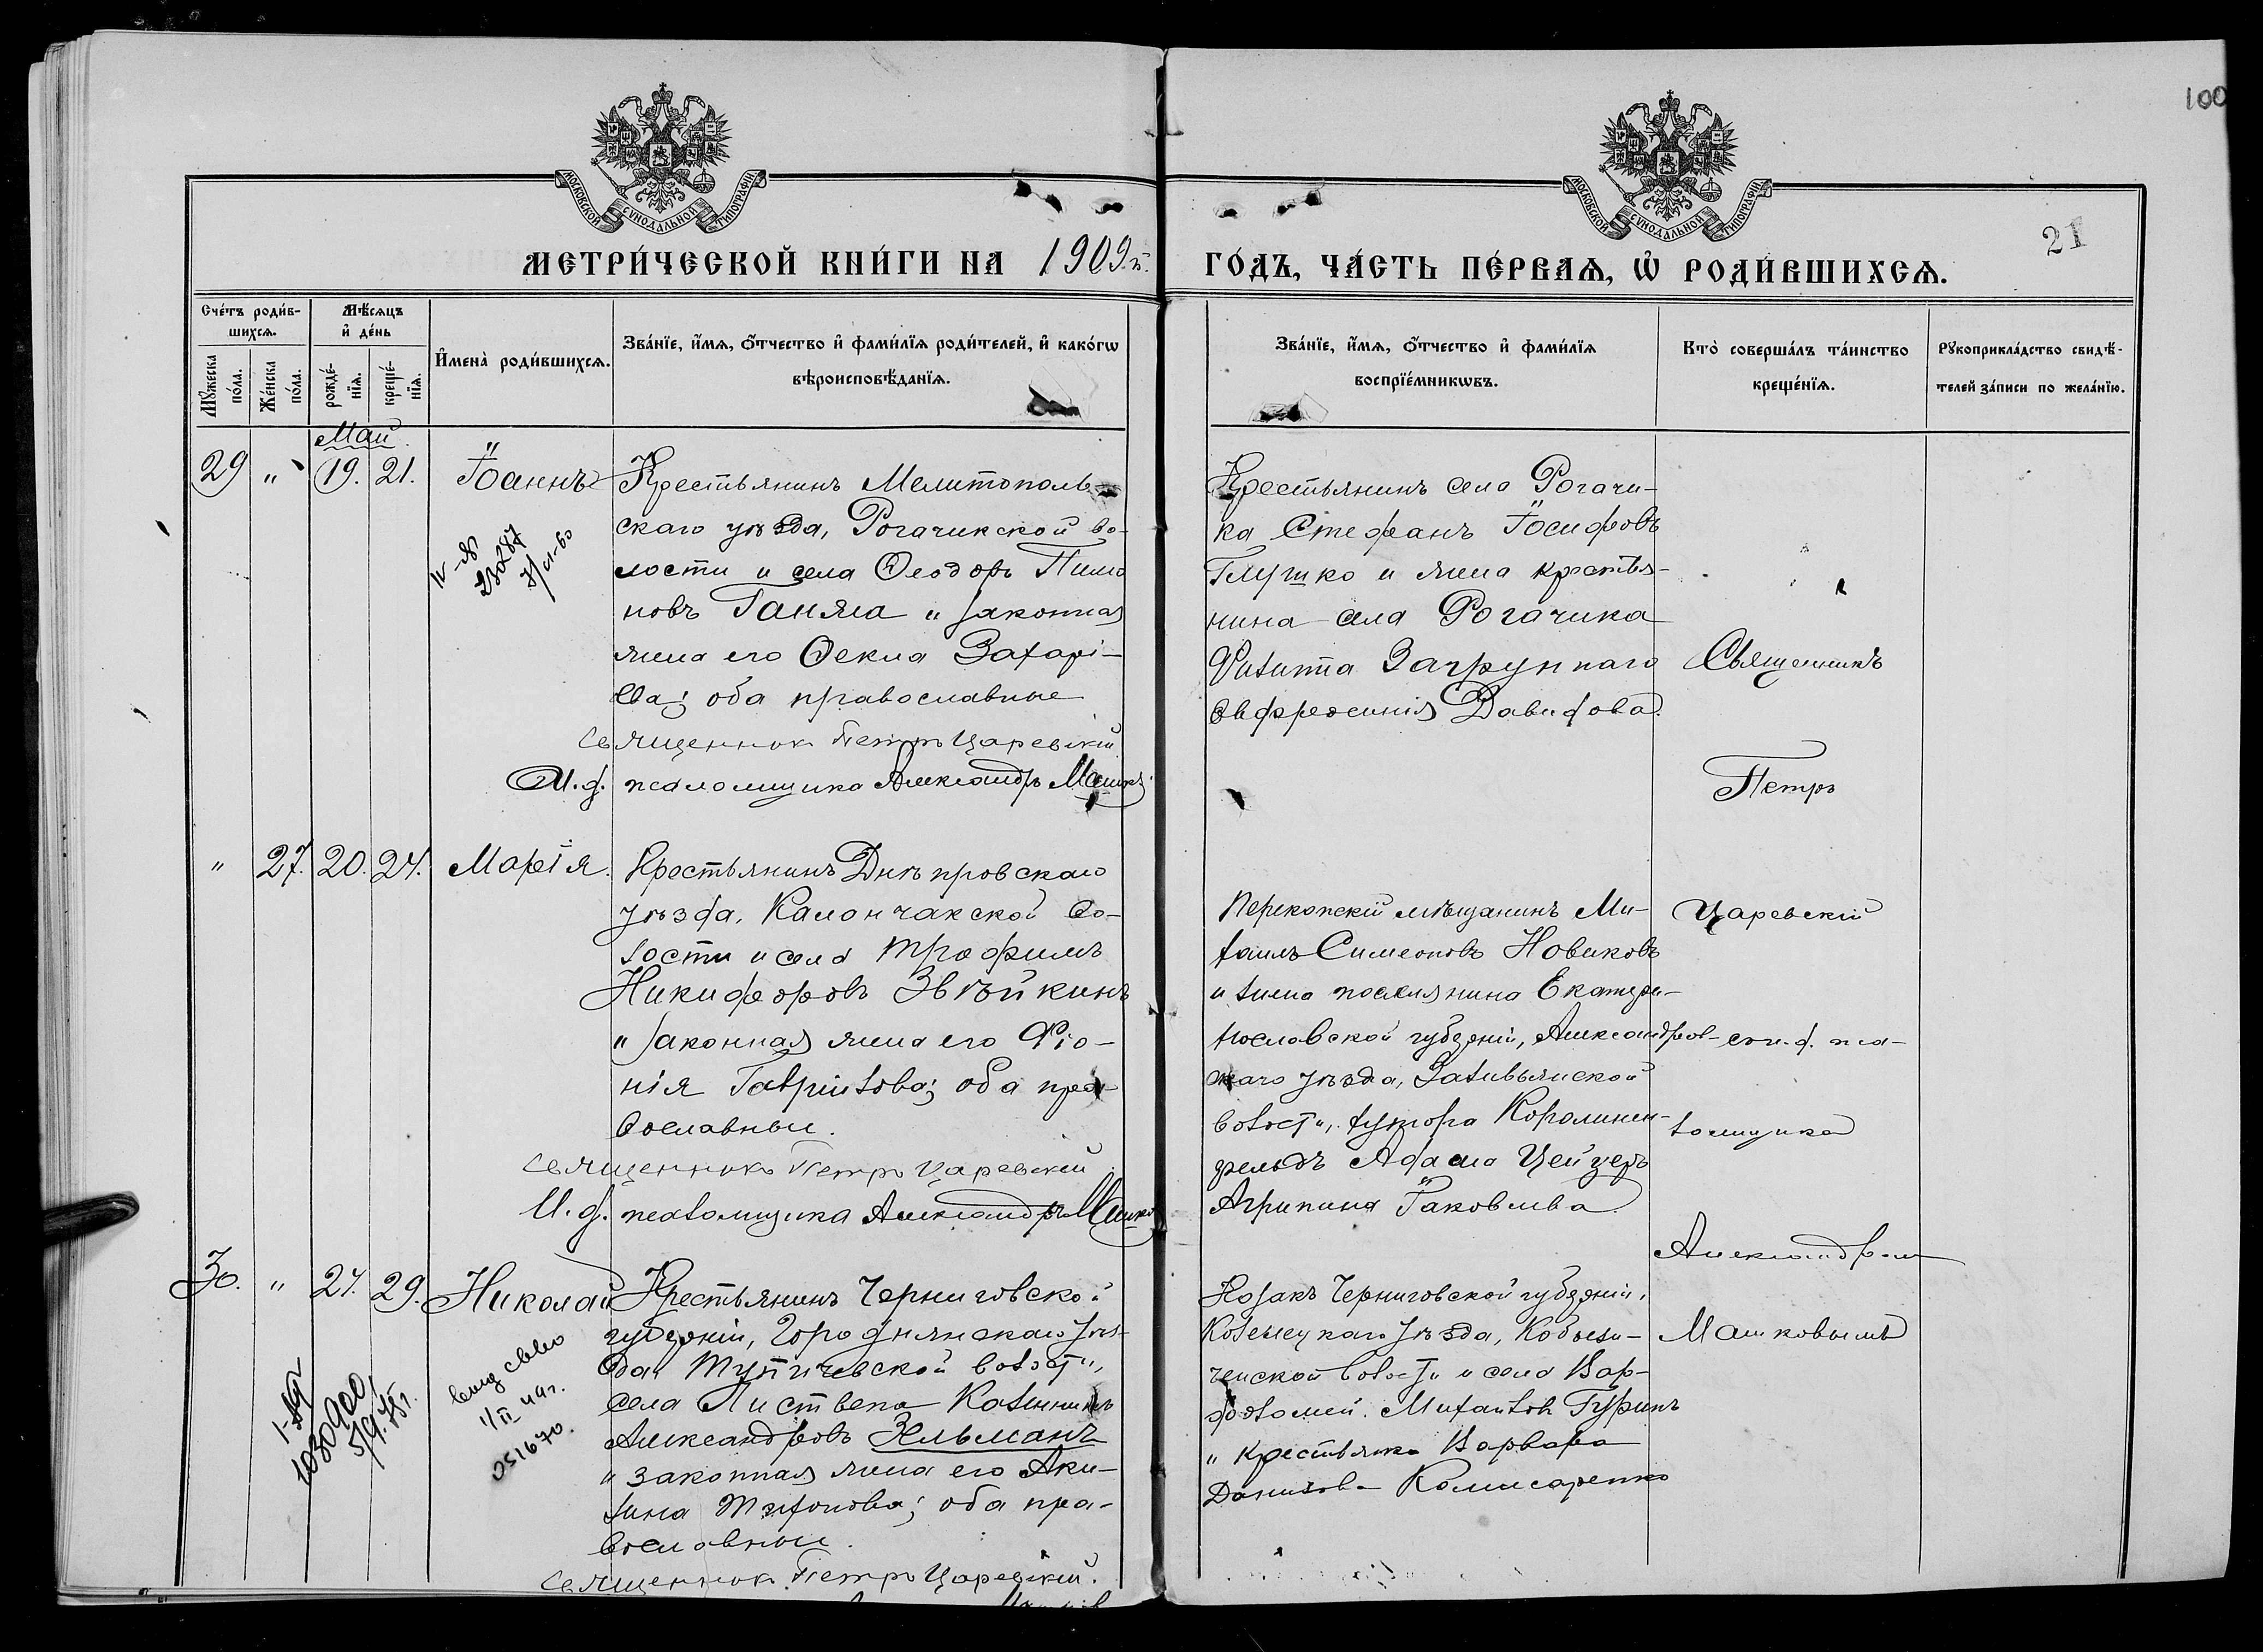 100
21
МОСКОВСКОЙ СѴНОДАЛЬНОЙ ТИПОГРАФІИ
МОСКОВСКОЙ СѴНОДАЛЬНОЙ ТИПОГРАФІИ
МЕТРИ́ЧЕСКОЙ КНИ́ГИ НА 1909 г.
ГО́ДЪ, ЧА́СТЬ ПЕ́РВАЯ, Ѡ҆ РОДИ́ВШИХСЯ.
Сче́тъ роди́в-
шихся.
Мꙋжеска по́ла.
Же́нска по́ла.
Мѣ́сяцъ
и҆ де́нь
рожде́-
нїя.
креще́-
нїя.
И҆мена̀ роди́вшихся.
Зва́нїе, и҆́мя, ѻ҆́тчество и҆ фами́лїя роди́телей, и҆ како́гѡ
вѣроисповѣ́данїя.
Зва́нїе, и҆́мя, ѻ҆́тчество и҆ фами́лїя
воспрїе́мникѡвъ.
Кто̀ соверша́лъ та́инство
креще́нїя.
Рꙋкоприкла́дство свидѣ́-
телей за́писи по жела́нїю.
Май.
29 " 19. 21. Іоаннъ
Крестьянинъ Мелитополь-
скаго уѣзда, Рогачикской во-
лости и села Ѳеодоръ Пимо
новъ Ганжа и законная
жена его Ѳекла Захарі-
ева; оба православные
Священникъ Петръ Царевскій
И. д. псаломщика Александръ Машков
23028
Крестьянинъ села Рогачи-
ка Стефанъ Іосифовъ
Глушко и жена крестья-
нина села Рогачика
Филиппа Загрупнаго
Евфросинія Давидова.
" 27. 20. 24. Марія.
Крестьянинъ Днѣпровскаго
уѣзда, Каланчакской во-
лости и села Трофимъ
Никифоровъ Звѣйкинъ
и законная жена его Фіо-
нія Гавріилова; оба пра-
вославные.
Священникъ Петръ Царевскій
И. д. псаломщика Александръ Машков
Перекопскій мѣщанинъ Ми-
хаилъ Симеоновъ Новиковъ
и жена поселянина Екатери-
нославской губерніи, Александров-
скаго уѣзда,
волости, хутора Каролинен-
фельдъ Адама Цейзеръ
Агрипина Іаковлева
30. " 24. 29. Николай
Крестьянинъ Черниговской
губерніи, Городнянскаго уѣз-
да, Тупичевской волости,
села Листвена Калинникъ
Александровъ Зельманъ
и законная жена его Аки-
лина Тихонова; оба пра-
вославные.
Священникъ Петръ Царевскій.
1030900
5/9.75 г.
1/II 49 г.
051670.
Козакъ Черниговской губерніи,
Козелецкаго уѣзда, Кобыжи-
ченской волости и села Вар-
фоломей Михаиловъ Гуринъ
и крестьянка Варвара
Данилова Комисаренко
Священникъ
Петръ
Царевскій
съ и. д. пса-
ломщика
Александромъ
Машковымъ